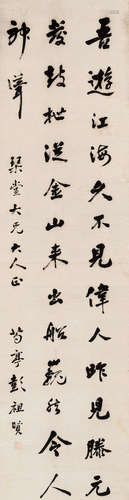 吾遊江海久不見偉人昨見滕元
發鼓枻從金山来出船巍然令人
神聳
琹堂大兄大人正
芍亭彭祖賢